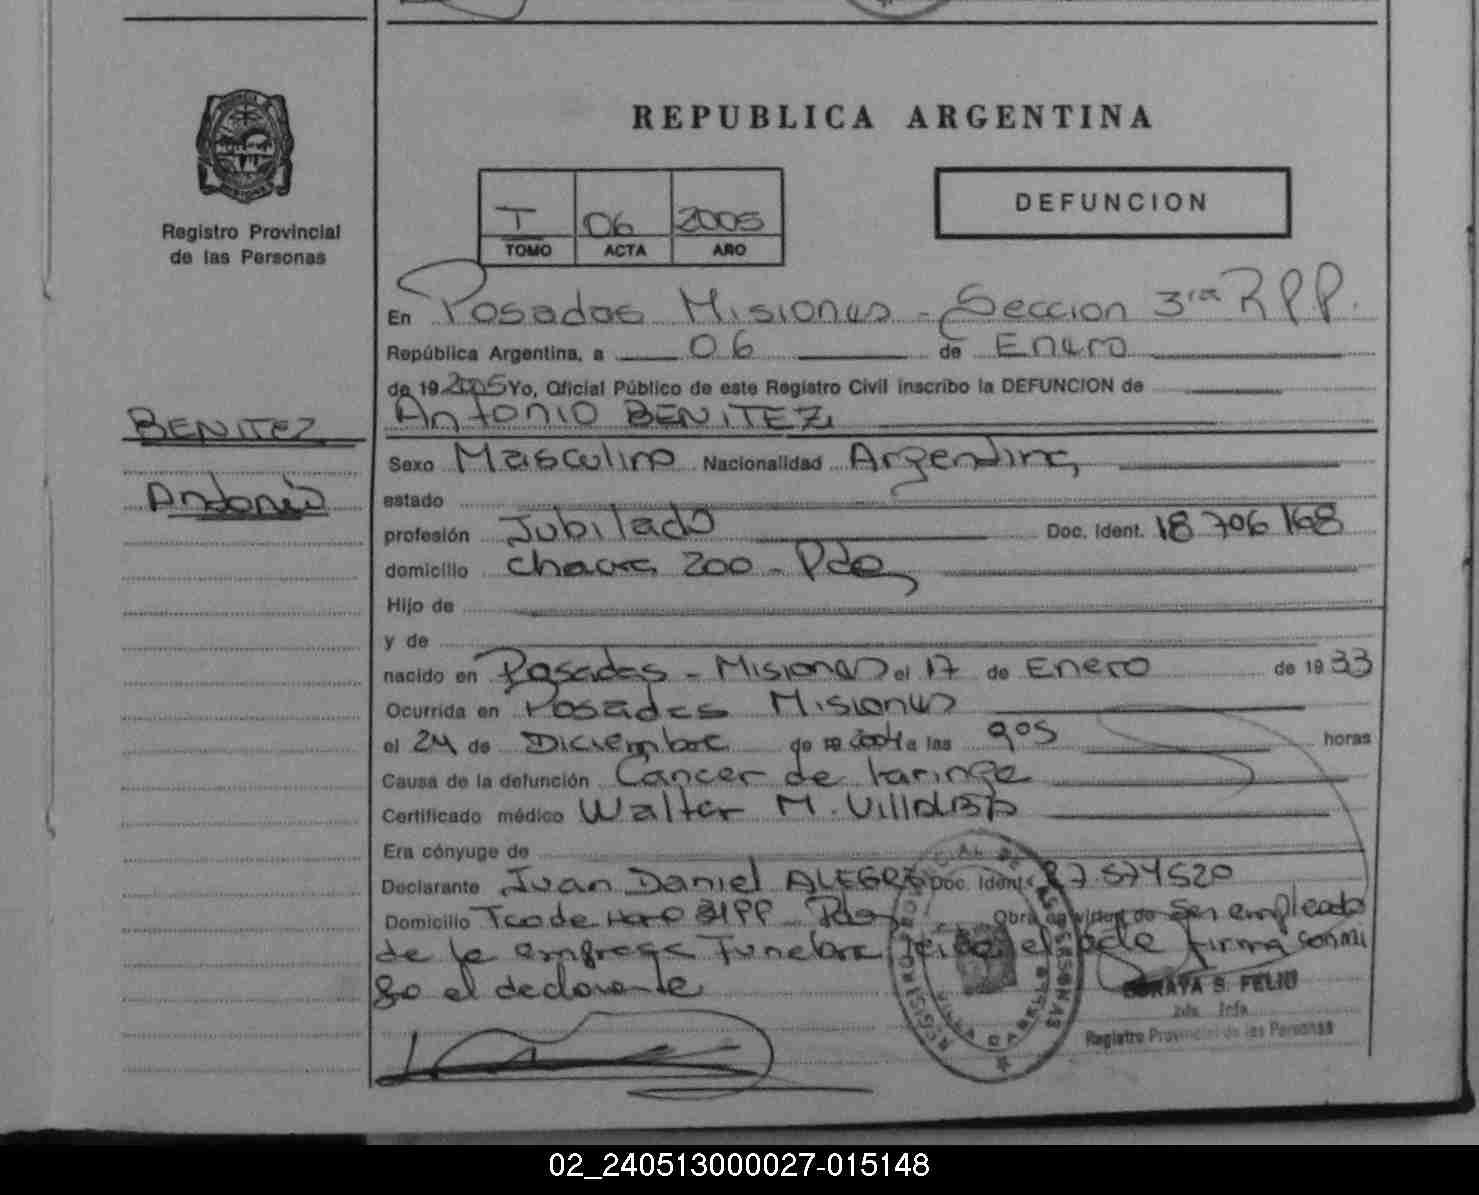 REPUBLICA ARGENTINA
Registro Provincial
de las Personas
T 06 2005
TOMO ACTA AÑO
DEFUNCION
En Posadas Misiones - Seccion 3ra RPP.
República Argentina, a 06 de Enero
de 19 2005 Yo, Oficial Público de este Registro Civil inscribo la DEFUNCION de
Antonio BENITEZ
BENITEZ
Antonio
Sexo Masculino Nacionalidad Argentina
estado
profesión Jubilado Doc. Ident. 18 706 168
domicilio chacra 200 - Pdas
Hijo de
y de
nacido en Posadas - Misiones el 17 de Enero de 19 33
Ocurrida en Posadas Misiones
el 24 de Diciembre de 19 2004 a las 905 horas
Causa de la defunción Cancer de laringe
Certificado médico Walter M.
Era cónyuge de
Declarante Juan Daniel ALEGRE Doc. Ident. 27 574520
Domicilio Tco de Haro Pdas Obra en virtud de Ser empleado
de la empresa Funebre el acta firma conmi
go el declarante
SORAYA S. FELIU
Registro Provincial de las Personas
02_240513000027-015148